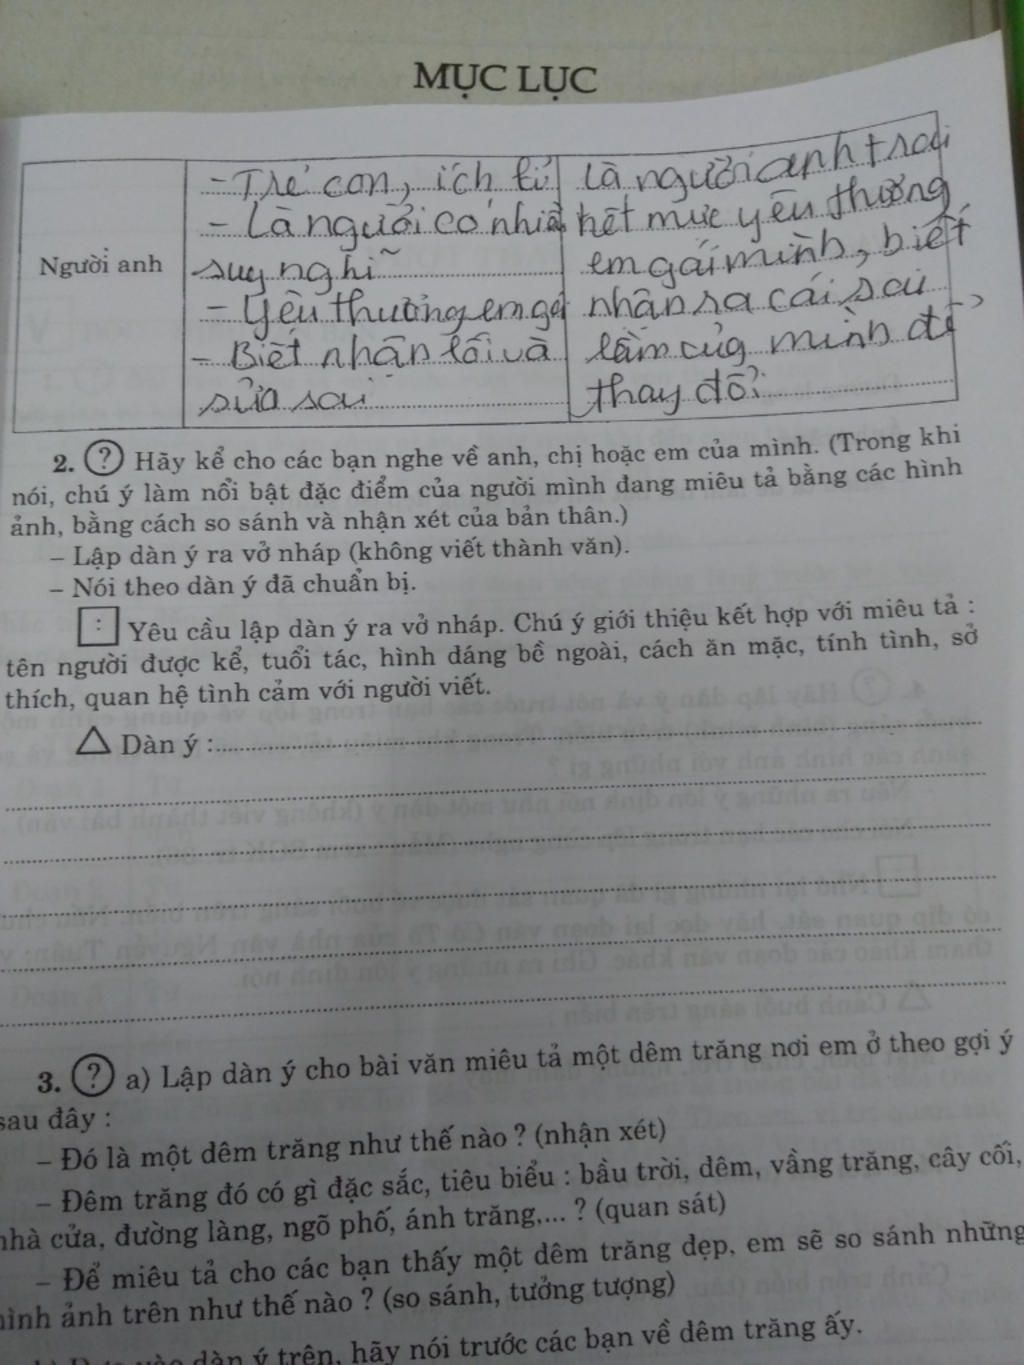 MỤC LỤC
Người anh
- Trẻ con, ích kỉ
- Là người có nhiều
suy nghĩ
- Yêu thương em gá
- Biết nhận lỗi và
sửa sai
là người anh trai
hết mực yêu thương
em gái mình, biết
nhận ra cái sai
lầm của mình để
thay đổi
2. ? Hãy kể cho các bạn nghe về anh, chị hoặc em của mình. (Trong khi
nói, chú ý làm nổi bật đặc điểm của người mình đang miêu tả bằng các hình
ảnh, bằng cách so sánh và nhận xét của bản thân.)
– Lập dàn ý ra vở nháp (không viết thành văn).
– Nói theo dàn ý đã chuẩn bị.
: Yêu cầu lập dàn ý ra vở nháp. Chú ý giới thiệu kết hợp với miêu tả :
tên người được kể, tuổi tác, hình dáng bề ngoài, cách ăn mặc, tính tình, sở
thích, quan hệ tình cảm với người viết.
Dàn ý :
3. ? a) Lập dàn ý cho bài văn miêu tả một đêm trăng nơi em ở theo gợi ý
sau đây :
– Đó là một đêm trăng như thế nào ? (nhận xét)
– Đêm trăng đó có gì đặc sắc, tiêu biểu : bầu trời, đêm, vầng trăng, cây cối,
nhà cửa, đường làng, ngõ phố, ánh trăng,... ? (quan sát)
– Để miêu tả cho các bạn thấy một đêm trăng đẹp, em sẽ so sánh những
hình ảnh trên như thế nào ? (so sánh, tưởng tượng)
dàn ý trên, hãy nói trước các bạn về đêm trăng ấy.